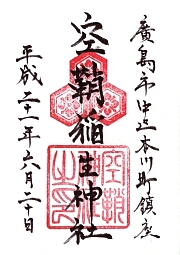 廣島市中区本川町鎮座
空鞘稲生神社
平成二十一年六月二十日